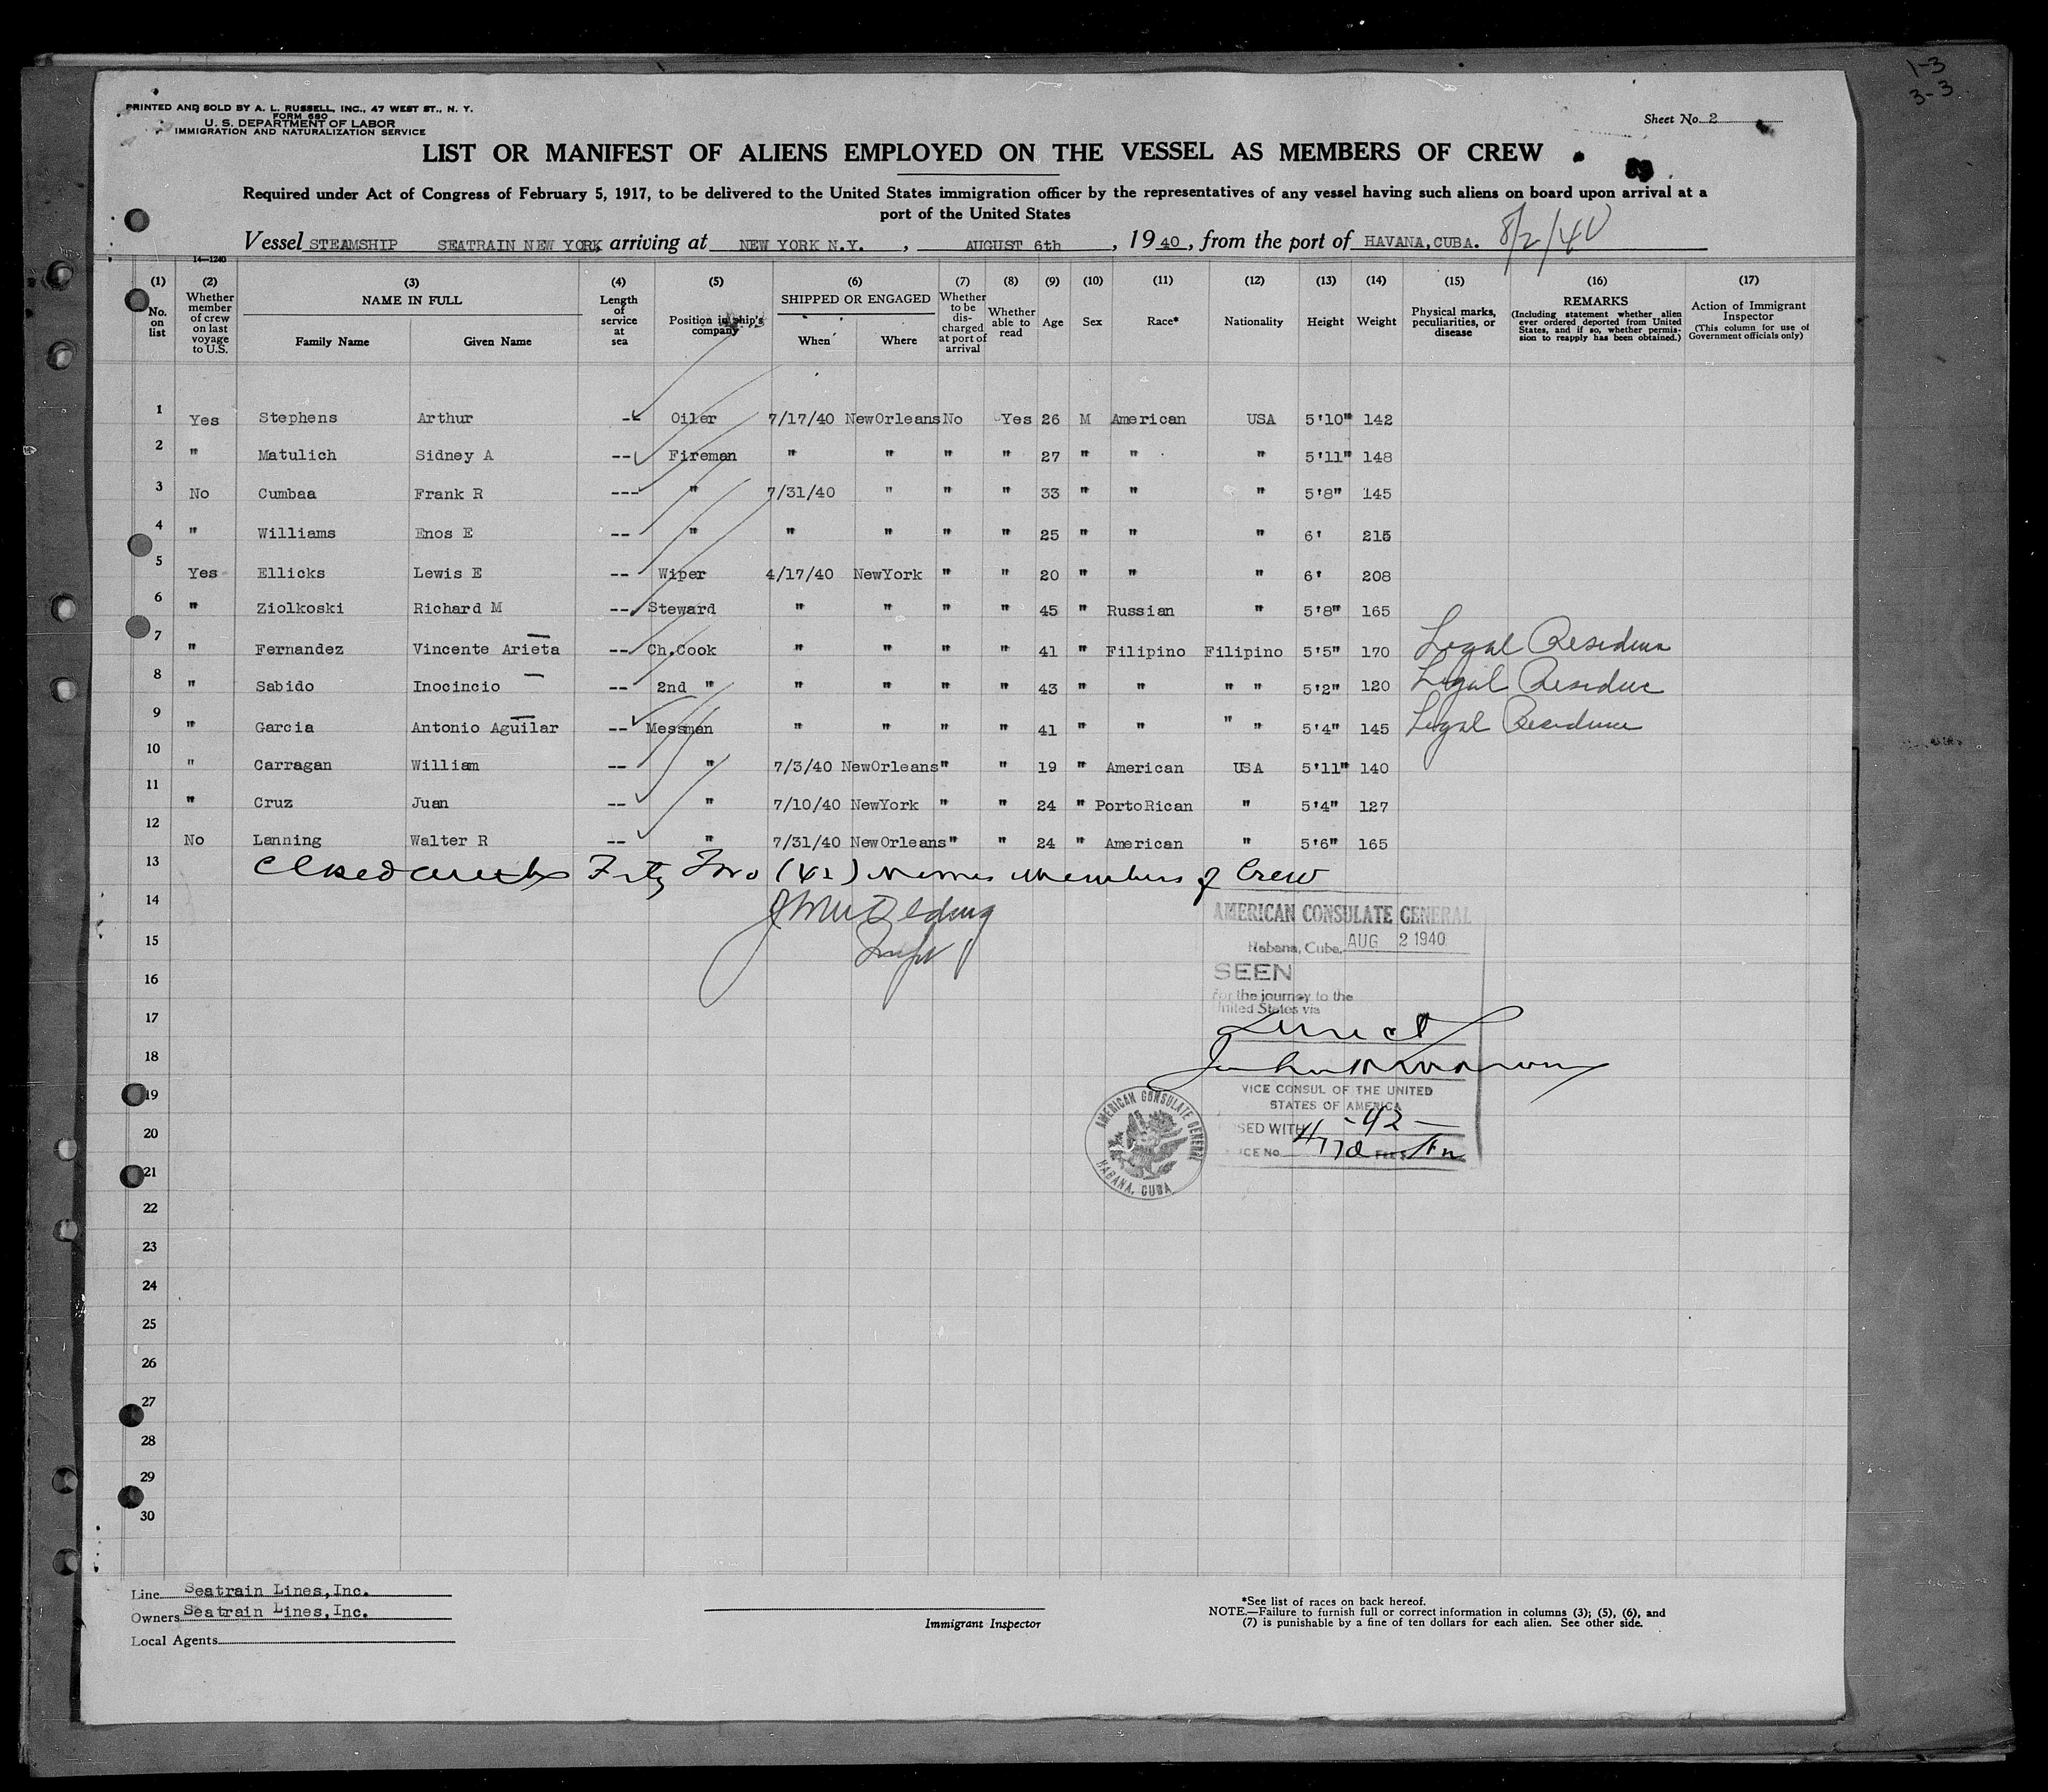 1-3
3-3
PRINTED AND SOLD BY A. L. RUSSELL, INC., 47 WEST ST., N. Y.
FORM 680
U. S. DEPARTMENT OF LABOR
IMMIGRATION AND NATURALIZATION SERVICE
Sheet No. 2
LIST OR MANIFEST OF ALIENS EMPLOYED ON THE VESSEL AS MEMBERS OF CREW
Required under Act of Congress of February 5, 1917, to be delivered to the United States immigration officer by the representatives of any vessel having such aliens on board upon arrival at a
port of the United States
Vessel STEAMSHIP SEATRAIN NEW YORK, arriving at NEW YORK N.Y. , AUGUST 6th , 19 40 , from the port of HAVANA,CUBA. 8/2/40
14—1240
(1) No. on list
(2) Whether member of crew on last voyage to U.S.
(3) NAME IN FULL Family Name Given Name
(4) Length of service at sea
(5) Position in ship's company
(6) SHIPPED OR ENGAGED When Where
(7) Whether to be discharged at port of arrival
(8) Whether able to read
(9) Age
(10) Sex
(11) Race*
(12) Nationality
(13) Height
(14) Weight
(15) Physical marks, peculiarities, or disease
(16) REMARKS (Including statement whether alien ever ordered deported from United States, and if so, whether permission to reapply has been obtained.)
(17) Action of Immigrant Inspector (This column for use of Government officials only)
1 Yes Stephens Arthur -- Oiler 7/17/40 NewOrleans No Yes 26 M American USA 5'10" 142
2 " Matulich Sidney A -- Fireman " " " " 27 " " " 5'11" 148
3 No Cumbaa Frank R --- " 7/31/40 " " " 33 " " " 5'8" 145
4 " Williams Enos E -- " " " " " 25 " " " 6' 215
5 Yes Ellicks Lewis E -- Wiper 4/17/40 NewYork " " 20 " " " 6' 208
6 " Ziolkoski Richard M -- Steward " " " " 45 " Russian " 5'8" 165
7 " Fernandez Vincente Arieta -- Ch.Cook " " " " 41 " Filipino Filipino 5'5" 170 Legal Residence
8 " Sabido Inocincio -- 2nd " " " " " 43 " " " " 5'2" 120 Legal Residence
9 " Garcia Antonio Aguilar -- Messman " " " " 41 " " " " 5'4" 145 Legal Residence
10 " Carragan William -- " 7/3/40 NewOrleans " " 19 " American USA 5'11" 140
11 " Cruz Juan -- " 7/10/40 NewYork " " 24 " PortoRican " 5'4" 127
12 No Lanning Walter R -- " 7/31/40 NewOrleans " " 24 " American " 5'6" 165
13 Closed with Forty Two (42) Names Members of Crew
14
AMERICAN CONSULATE GENERAL
15
Habana, Cuba, AUG 2 1940
16
SEEN
For the journey to the
United States via
17
Direct
18
19
VICE CONSUL OF THE UNITED
STATES OF AMERICA
20
SED WITH -42-
ICE No.
AMERICAN CONSULATE GENERAL
HABANA, CUBA
21
22
23
24
25
26
27
28
29
30
Line Seatrain Lines,Inc.
Owners Seatrain Lines,Inc.
Local Agents
Immigrant Inspector
*See list of races on back hereof.
NOTE.—Failure to furnish full or correct information in columns (3); (5), (6), and
(7) is punishable by a fine of ten dollars for each alien. See other side.